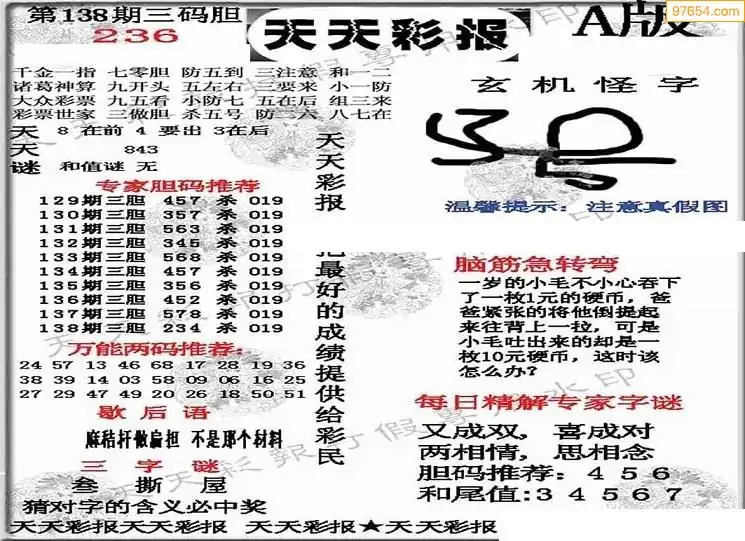 第138期三码胆
236
天天彩报
A版
97654.com
千金一指 七零胆 防五到 三注意 和一二
诸葛神算 九开头 五左右 三要来 小一防
大众彩票 九五看 小防七 五在后 组三来
彩票世家 三做胆 杀五号 防二六 八七在
天 8 在前 4 要出 3在后
天 843
谜 和值谜 无
专家胆码推荐
129期三胆 457 杀 019
130期三胆 357 杀 019
131期三胆 563 杀 019
132期三胆 345 杀 019
133期三胆 568 杀 019
134期三胆 457 杀 019
135期三胆 356 杀 019
136期三胆 452 杀 019
137期三胆 578 杀 019
138期三胆 234 杀 019
万能两码推荐:
24 57 13 46 68 17 28 19 36
38 39 14 03 58 09 06 16 25
27 29 47 49 20 26 18 50 51
歇后语
麻秸杆做扁担 不是那个材料
三字谜
叁 撕 屋
猜对字的含义必中奖
天天彩报
把最好的成绩提供给彩民
玄机怪字
温馨提示: 注意真假图
脑筋急转弯
一岁的小毛不小心吞下
了一枚1元的硬币, 爸
爸紧张的将他倒提起
来往背上一拉, 可是
小毛吐出来的却是一
枚10元硬币, 这时该
怎么办?
每日精解专家字谜
又成双, 喜成对
两相情, 思相念
胆码推荐: 4 5 6
和尾值: 3 4 5 6 7
天天彩报天天彩报 天天彩报★天天彩报